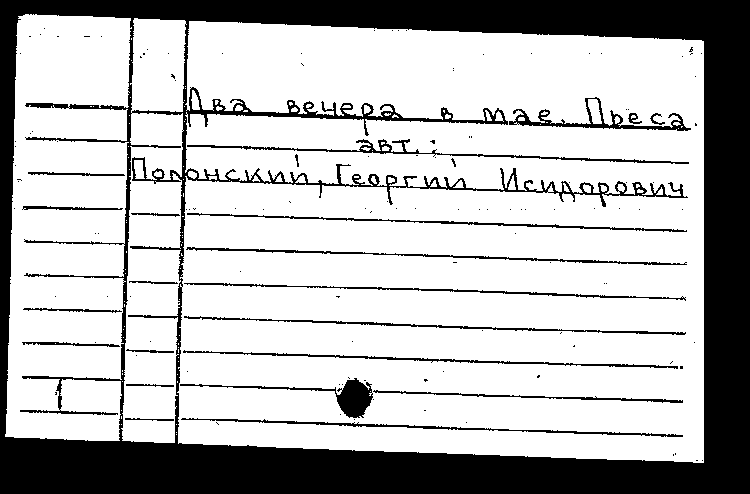 Два вечера в мае. Пьеса.
авт.:
Полонский, Георгий Исидорович